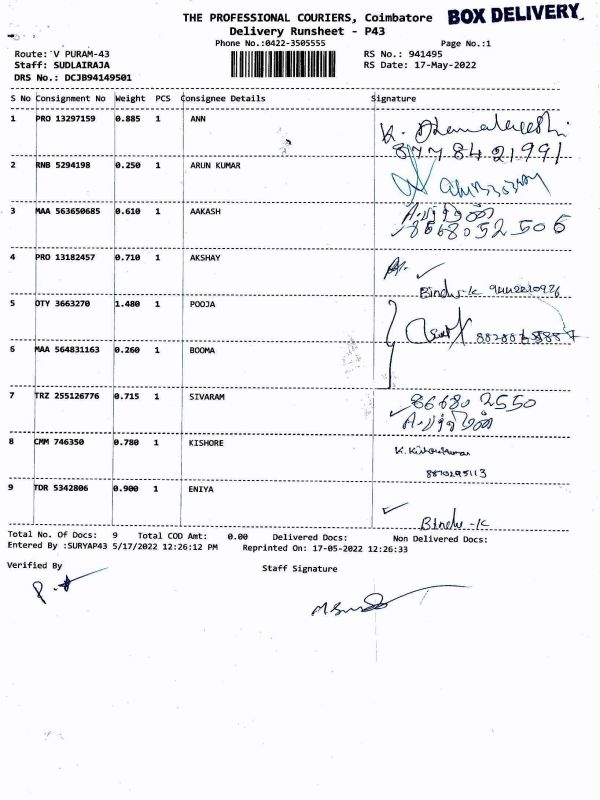 THE PROFESSIONAL COURIERS, Coimbatore BOX DELIVERY
Delivery Runsheet - P43
Phone No.:0422-3505555 Page No.:1
Route: V PURAM-43 RS No.: 941495
Staff: SUDLAIRAJA RS Date: 17-May-2022
DRS No.: DCJB94149501
S No Consignment No Weight PCS Consignee Details Signature
1 PRO 13297159 0.885 1 ANN
8778421991
2 RNB 5294198 0.250 1 ARUN KUMAR
3 MAA 563650685 0.610 1 AAKASH
8668052506
4 PRO 13182457 0.710 1 AKSHAY
Bindu-K
5 OTY 3663270 1.480 1 POOJA
6 MAA 564831163 0.260 1 BOOMA
7 TRZ 255126776 0.715 1 SIVARAM 866802550
8 CMM 746350 0.780 1 KISHORE
8870295113
9 TDR 5342806 0.900 1 ENIYA
Bindu-K
Total No. Of Docs: 9 Total COD Amt: 0.00 Delivered Docs: Non Delivered Docs:
Entered By :SURYAP43 5/17/2022 12:26:12 PM Reprinted On: 17-05-2022 12:26:33
Verified By Staff Signature